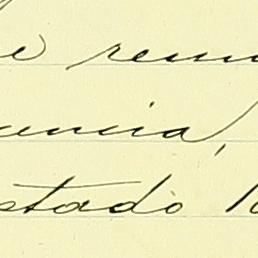 e remu
uencia,
stado